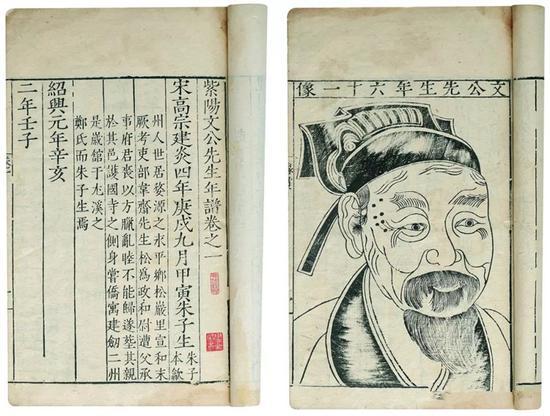 紫陽文公先生年譜卷之一
宋高宗建炎四年庚戌九月甲寅朱子生
朱子
本歙
州人世居婺源之永平鄉松巖里宣和末
厥考吏部韋齋先生松爲政和尉遭父承
事府君喪以方臘亂睦不能歸遂葬其親
於其邑護國寺之側身嘗僑寓建劒二州
是歲館于尤溪之
鄭氏而朱子生焉
紹興元年辛亥
二年壬子
文公先生年六十一像